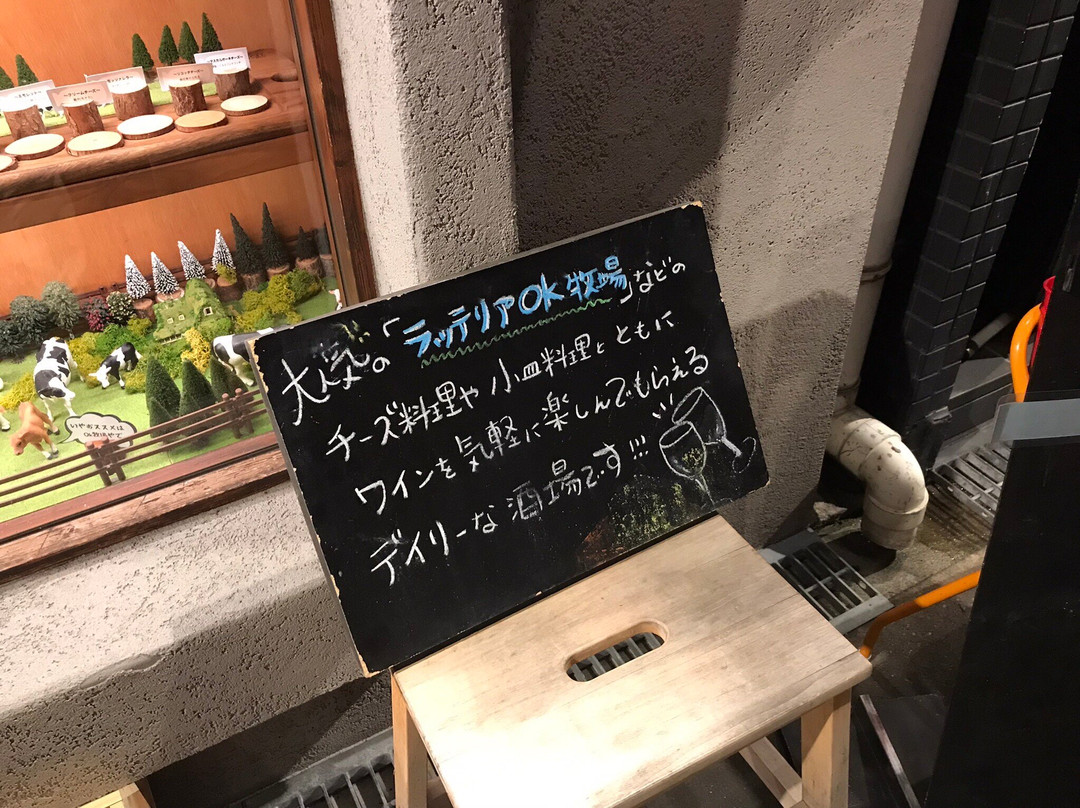 大人気の「ラッテリアOK牧場」などの
チーズ料理や小皿料理とともに
ワインを気軽に楽しんでもらえる
デイリーな酒場です!!!
いやオススメは
OK牧場やで